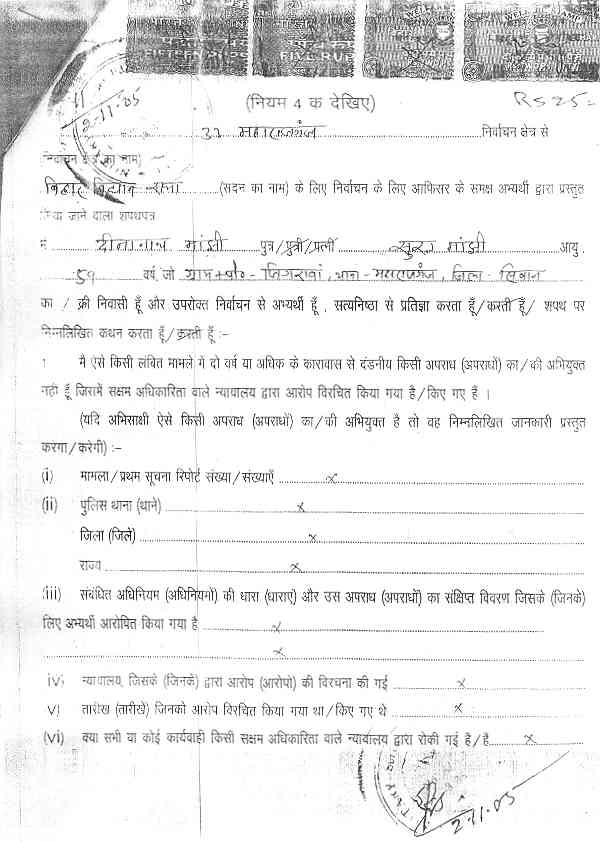 FIVE RUP
Rs 25=
11
2-11-05
(नियम 4 क देखिए)
32 महाराजगंज निर्वाचन क्षेत्र से
(निर्वाचन क्षेत्र का नाम)
बिहार विधान सभा (सदन का नाम) के लिए निर्वाचन के लिए आफिसर के समक्ष अभ्यर्थी द्वारा प्रस्तुत
किया जाने वाला शपथपत्र
मैं दीनानाथ मांझी पुत्र/पुत्री/पत्नी मांझी आयु
59 वर्ष, जो ग्राम+पो०- थाना-महाराजगंज, जिला-सिवान
का / की निवासी हूँ और उपरोक्त निर्वाचन से अभ्यर्थी हूँ, सत्यनिष्ठा से प्रतिज्ञा करता हूँ/करती हूँ/ शपथ पर
निम्नलिखित कथन करता हूँ/करती हूँ :-
1 मै ऐसे किसी लंबित मामले में दो वर्ष या अधिक के कारावास से दंडनीय किसी अपराध (अपराधों) का/की अभियुक्त
नहीं हूँ जिसमें सक्षम अधिकारिता वाले न्यायालय द्वारा आरोप विरचित किया गया है/किए गए हैं ।
(यदि अभिसाक्षी ऐसे किसी अपराध (अपराधों) का/की अभियुक्त है तो वह निम्नलिखित जानकारी प्रस्तुत
करेगा/करेगी) :-
(i) मामला/प्रथम सूचना रिपोर्ट संख्या/संख्याएँ x
(ii) पुलिस थाना (थाने) x
जिला (जिले) x
राज्य x
(iii) संबंधित अधिनियम (अधिनियमों) की धारा (धाराएं) और उस अपराध (अपराधों) का संक्षिप्त विवरण जिसके (जिनके)
लिए अभ्यर्थी आरोपित किया गया है x
x
iv) न्यायालय, जिसके (जिनके) द्वारा आरोप (आरोपों) की विरचना की गई x
v) तारीख (तारीखें) जिनको आरोप विरचित किया गया था/किए गए थे x
(vi) क्या सभी या कोई कार्यवाही किसी सक्षम अधिकारिता वाले न्यायालय द्वारा रोकी गई है/हैं x
2-11-05